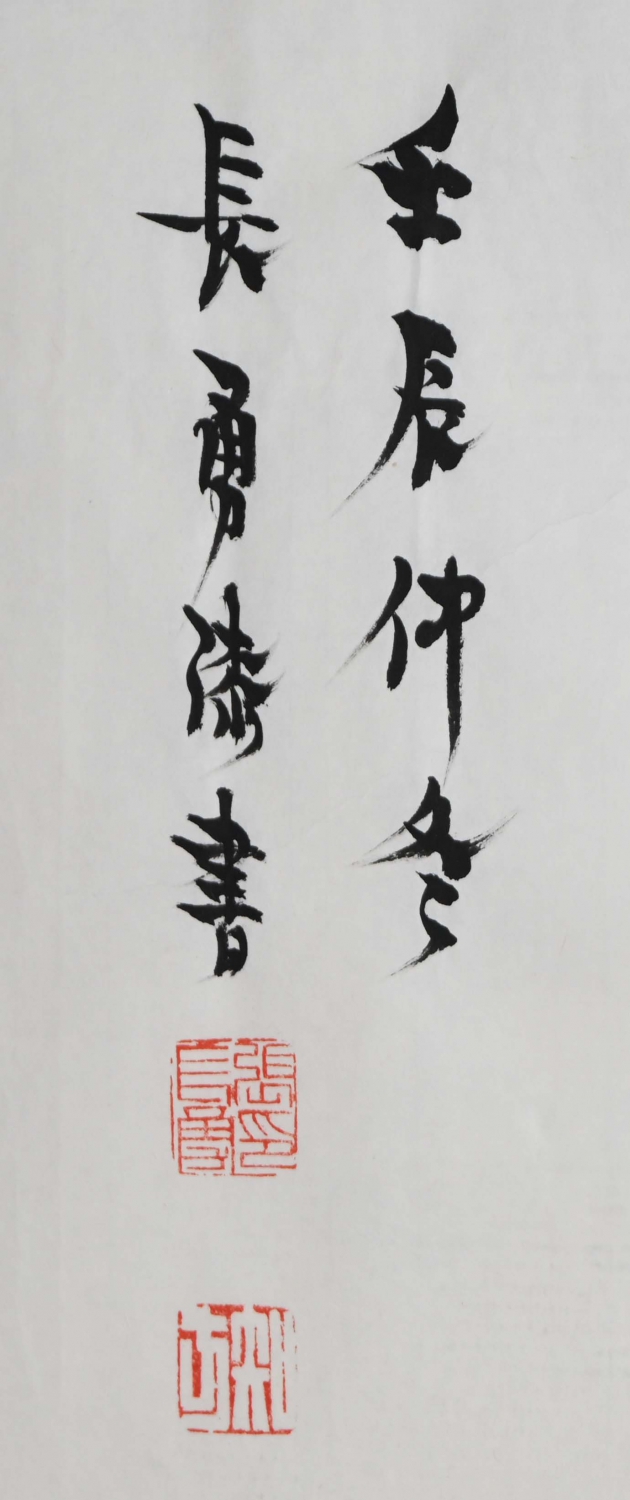 壬辰仲冬
長勇漆書